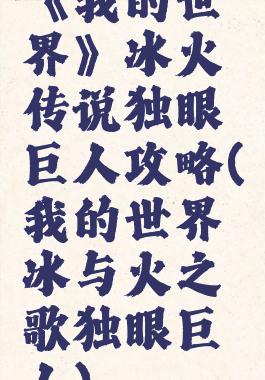 《我的世
界》冰火
传说独眼
巨人攻略(
我的世界
冰与火之
歌独眼巨
人)